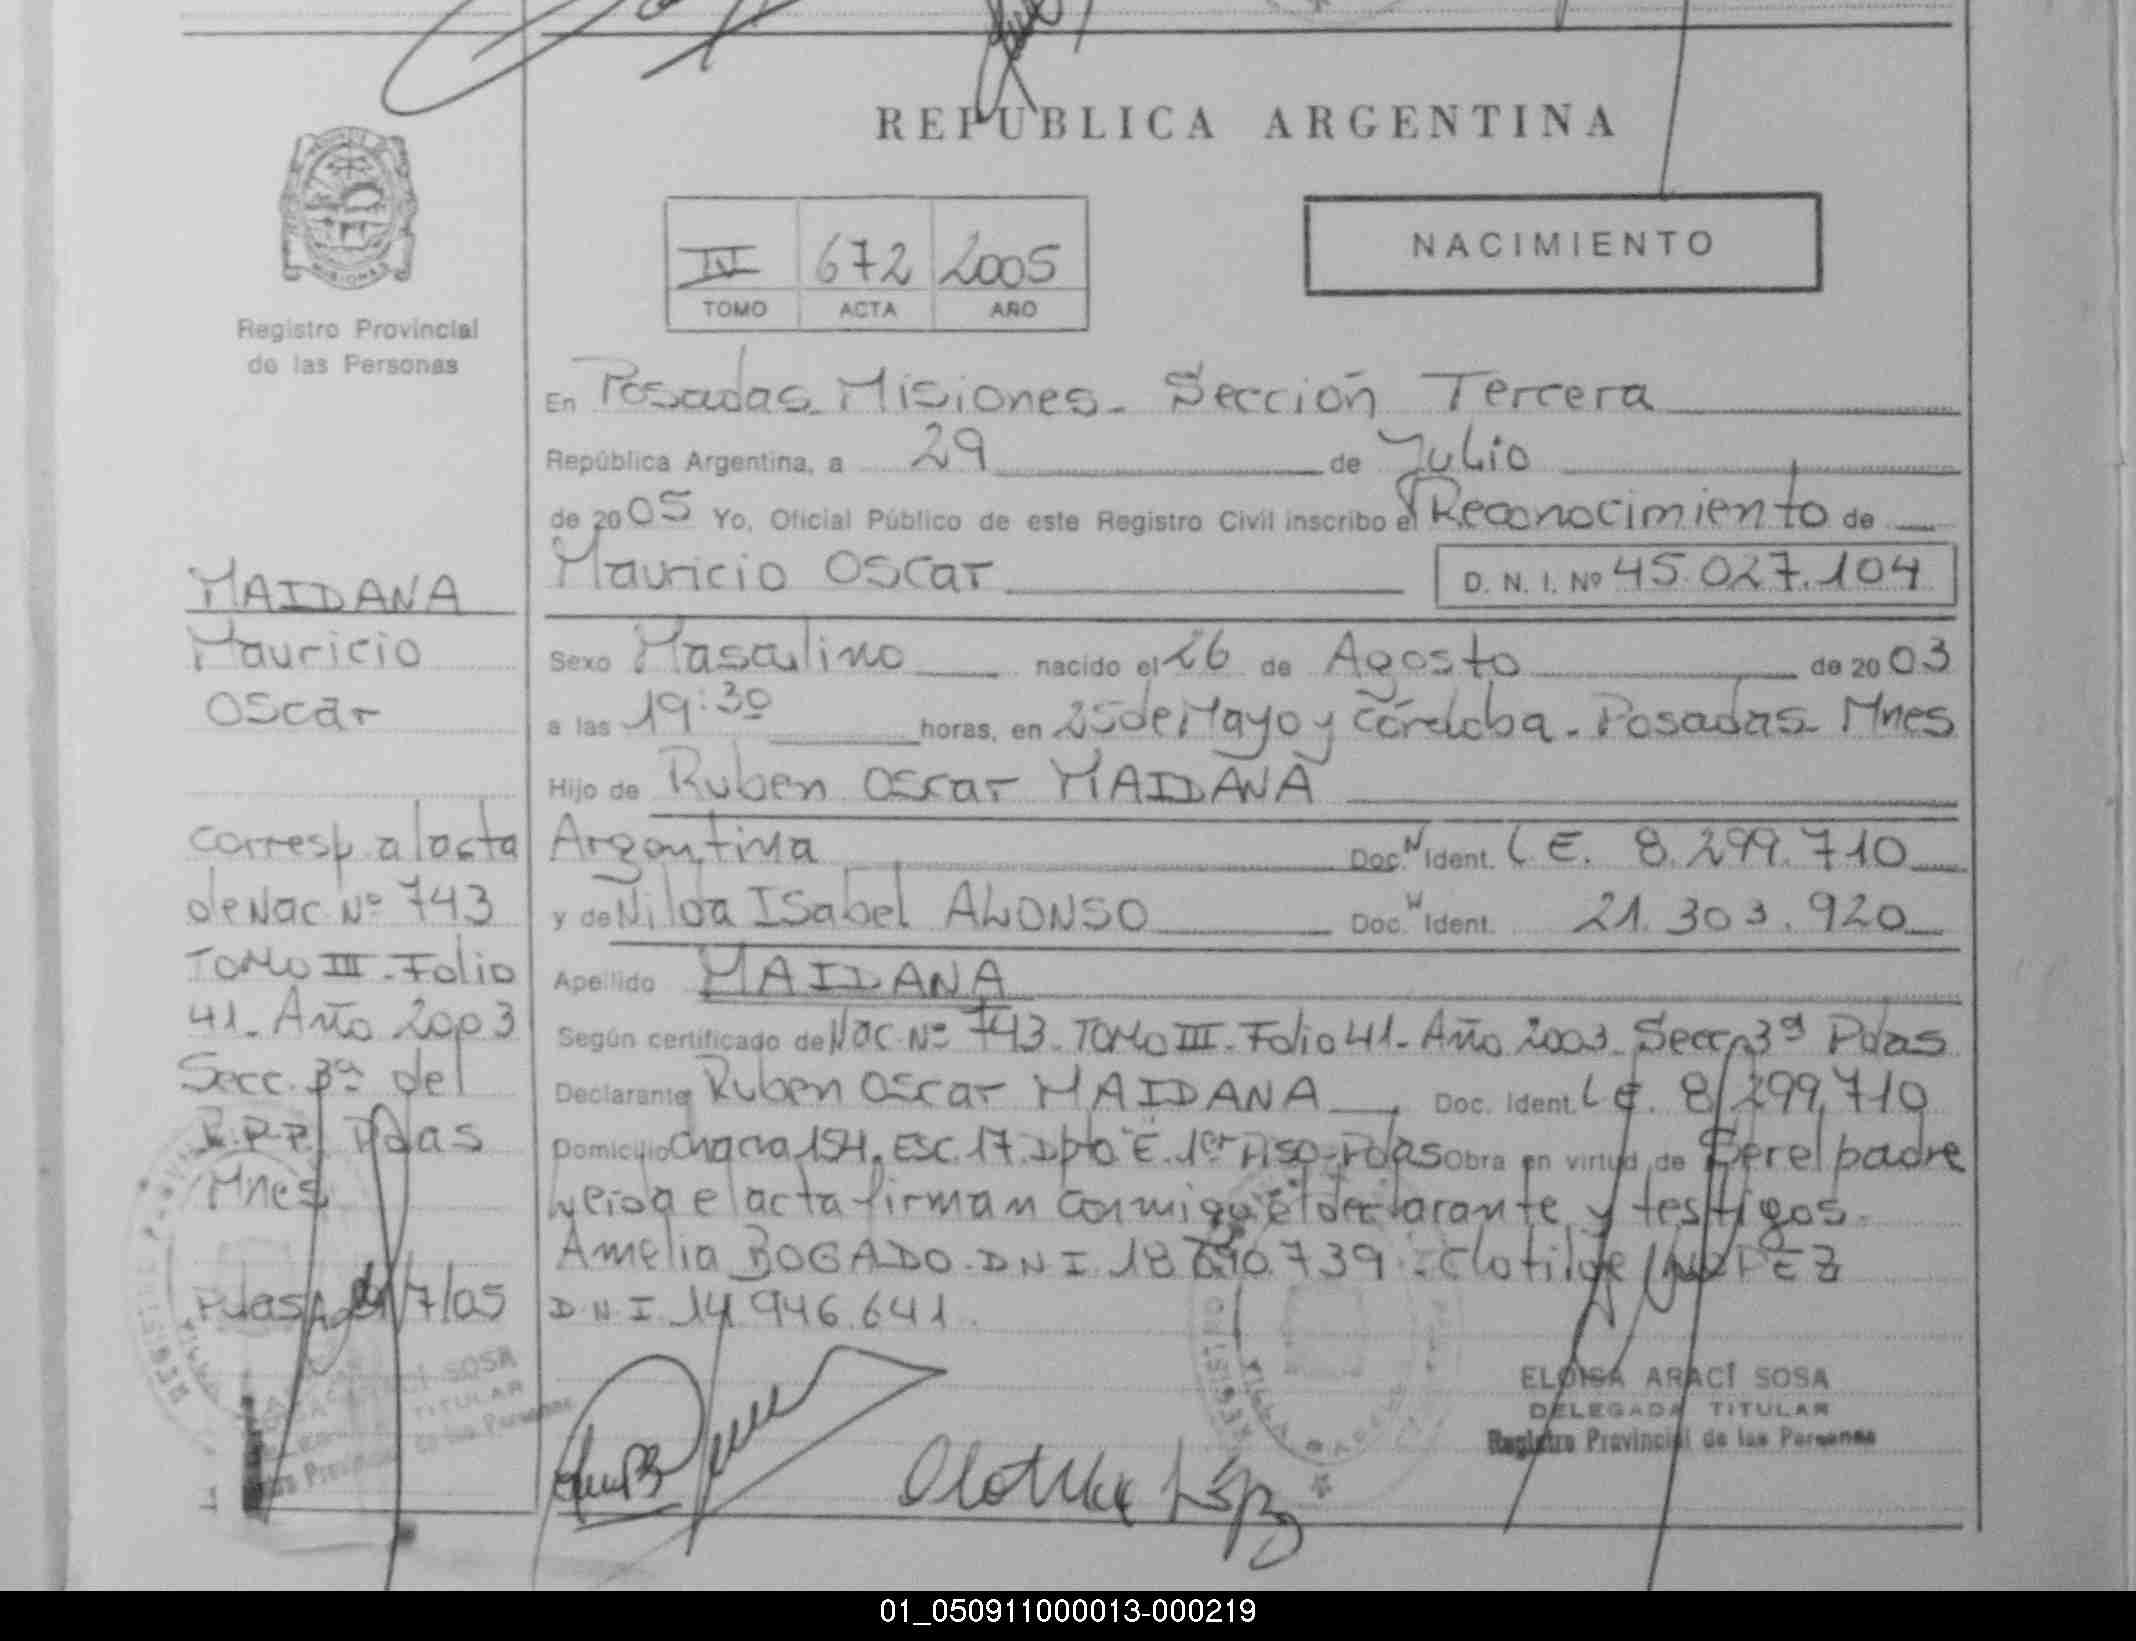 REPUBLICA ARGENTINA
IV 672 2005
TOMO ACTA AÑO
NACIMIENTO
Registro Provincial
de las Personas
MISIONES
En Posadas Misiones - Sección Tercera
República Argentina, a 29 de Julio
de 2005 Yo, Oficial Público de este Registro Civil inscribo el Reconocimiento de
Mauricio Oscar D. N. I. Nº 45.027.104
Sexo Masculino nacido el 26 de Agosto de 2003
a las 19:30 horas, en 25 de Mayo y Córdoba - Posadas - Mnes
Hijo de Ruben Oscar MAIDANA
Argentina Doc. Ident. L E. 8.299.710
y de Nilda Isabel ALONSO Doc. Ident. 21.303.920
Apellido MAIDANA
Según certificado de Nac Nº 743 - Tomo III - Folio 41 - Año 2003 - Secc 3ª Pdas
Declarante Ruben Oscar MAIDANA Doc. Ident. L E. 8.299.710
Domicilio Chacra 154. Esc. 17. Dpto E. 1er Piso - Pdas Obra en virtud de Ser el padre
y leida el acta firman conmigo el declarante y testigos.
Amelia BOGADO. D N I 18.690.739 - Clotilde LOPEZ
D N I. 14.946.641
MAIDANA
Mauricio
Oscar
Corresp a la acta
de Nac Nº 743
Tomo III - Folio
41 - Año 2003
Secc. 3ª del
R.P.P. Pdas
Mnes
Pdas, 29/7/05
SOSA
TITULAR
Clotilde López
ELOISA ARACÍ SOSA
DELEGADA TITULAR
Registro Provincial de las Personas
01_050911000013-000219